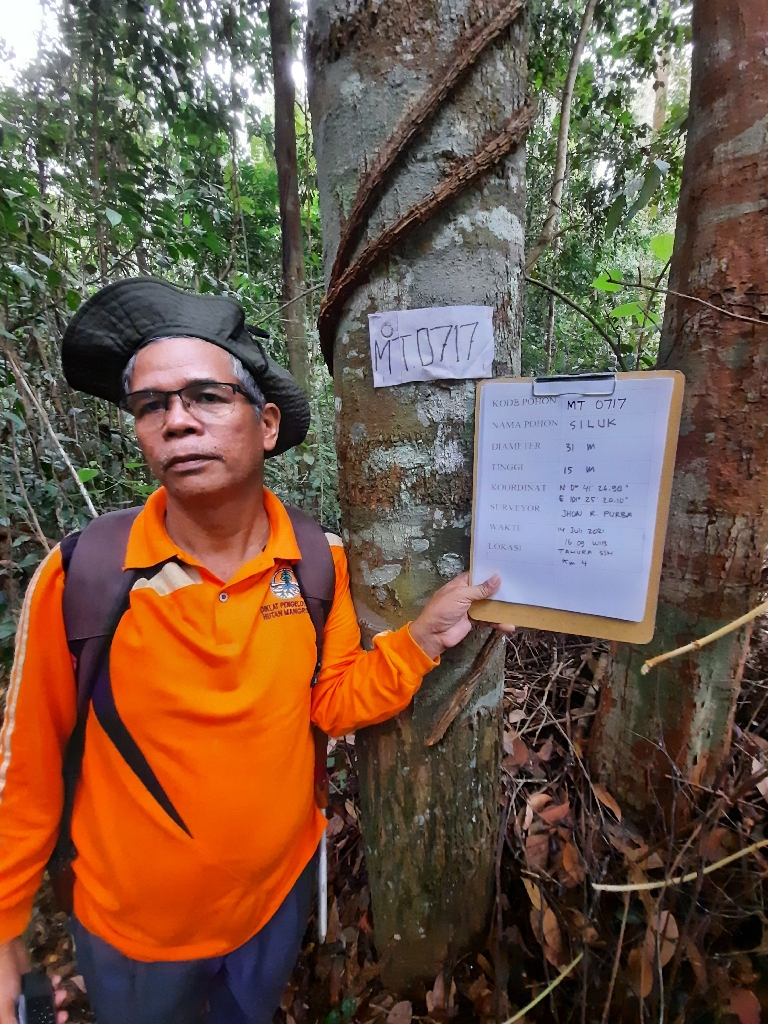 MT 0717
KODE POHON MT 0717
NAMA POHON SILUK
DIAMETER 31 m
TINGGI 15 m
KOORDINAT N 0° 41' 26.98"
E 101° 25' 20.10"
SURVEYOR JHON R. PURBA
WAKTU 14 JULI 2021
16.09 WIB
LOKASI TAHURA SSH
Km 4
DIKLAT PENGELO
HUTAN MANGR